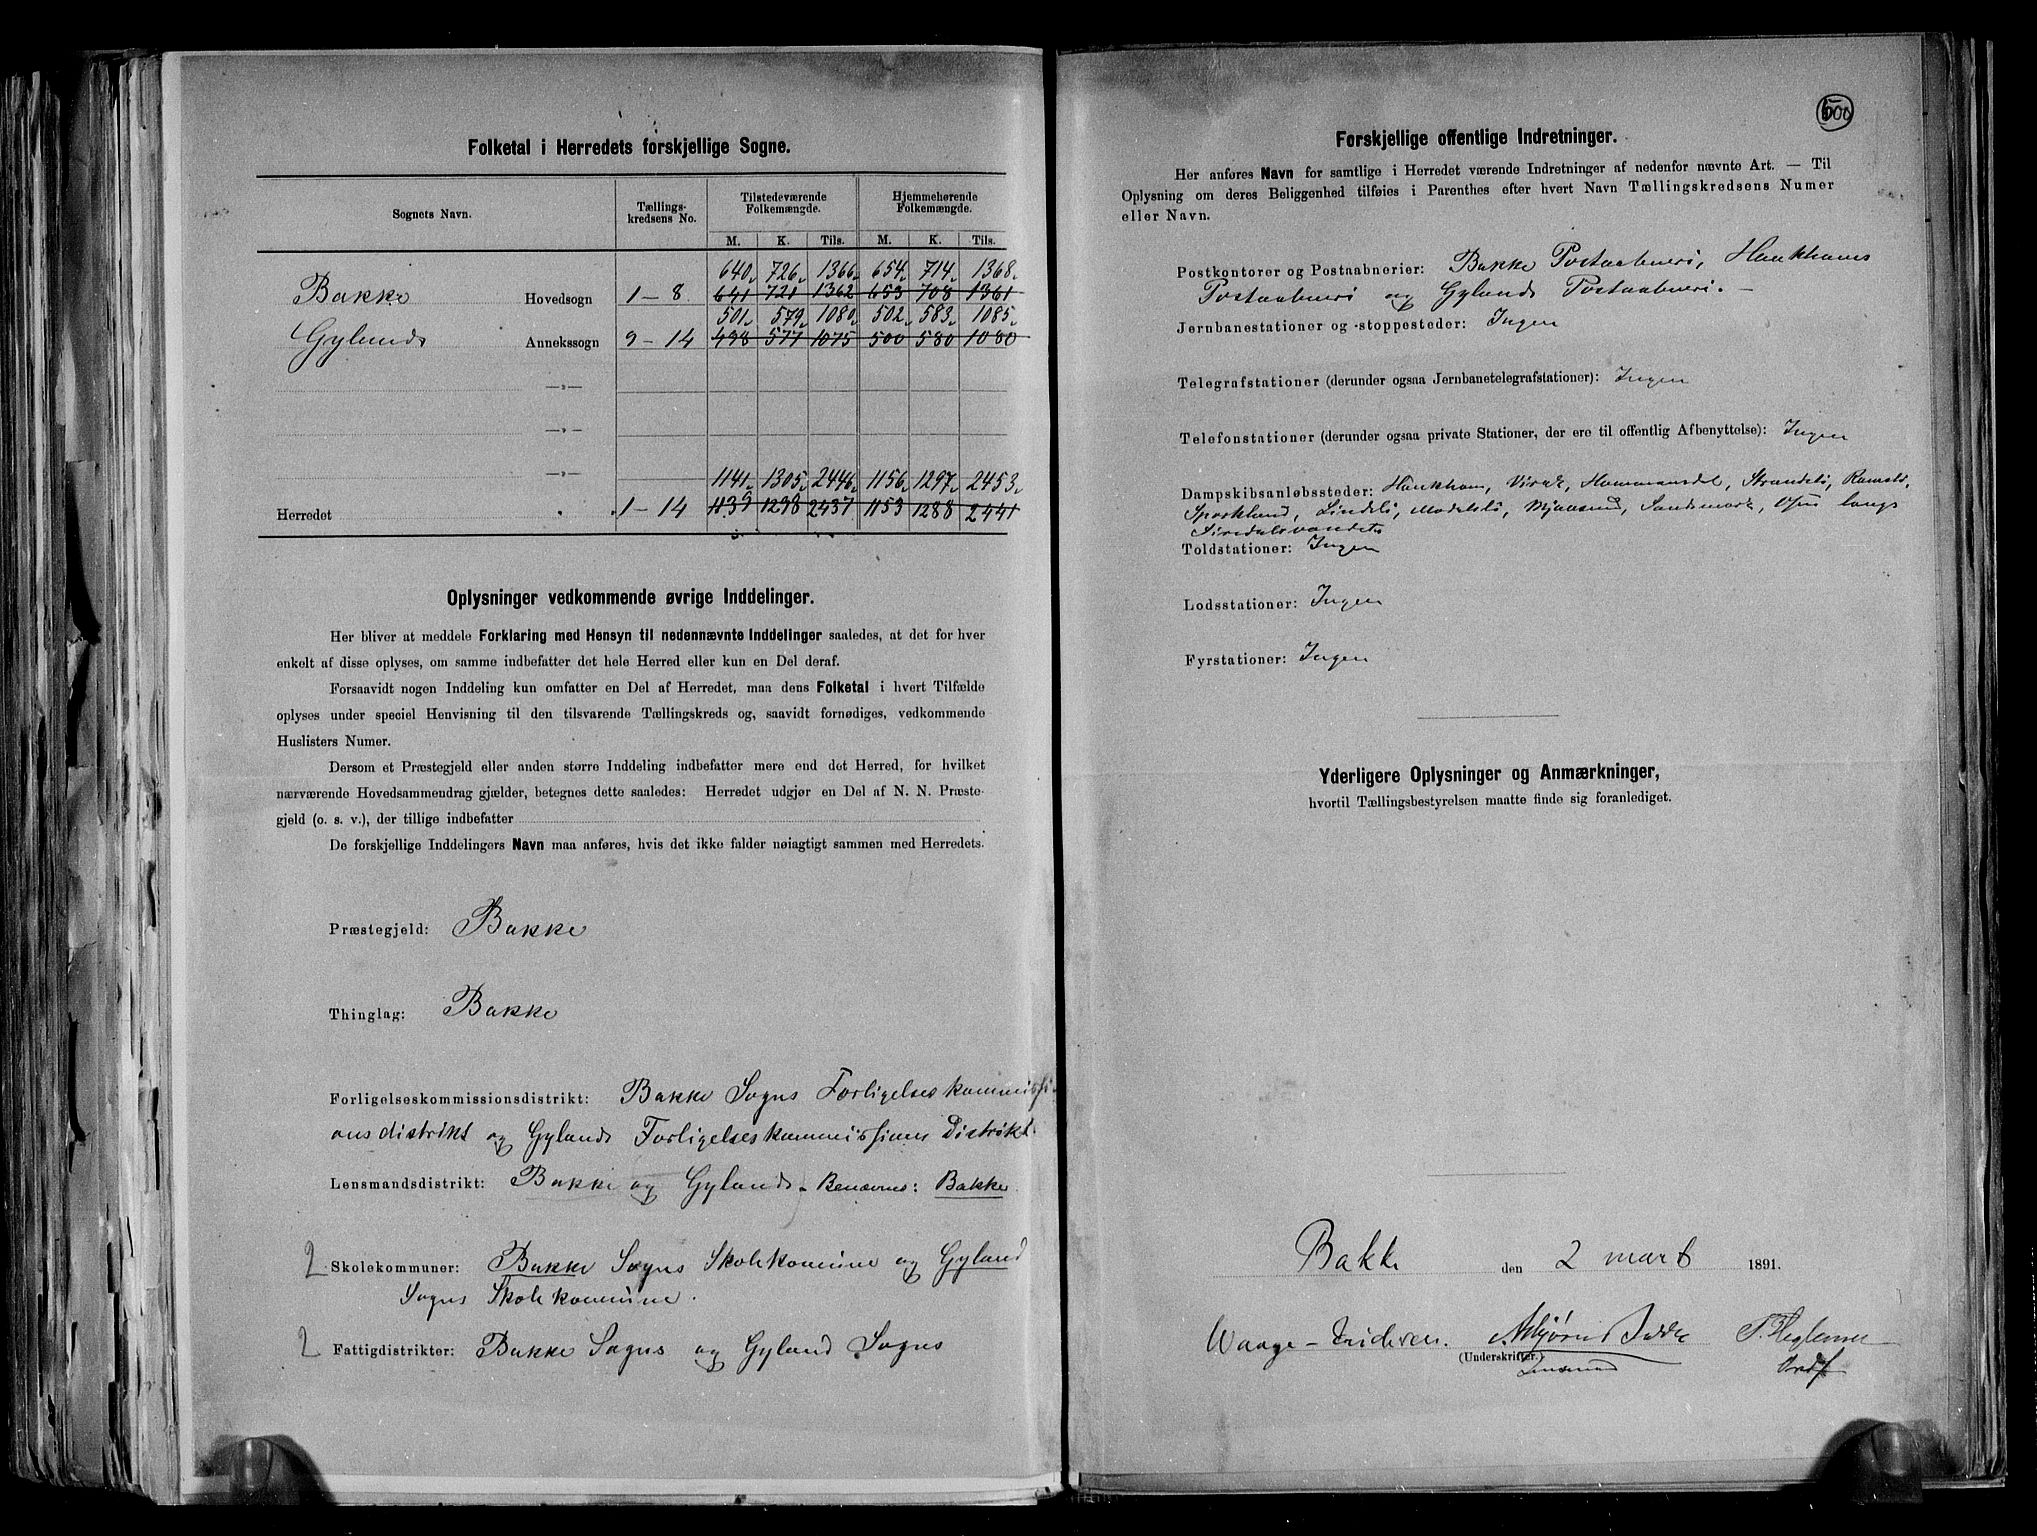 Folketal i Herredets forskjellige Sogne.
Sognets Navn. Tællings-kredsens No. Tilstedeværende Folkemængde. Hjemmehørende Folkemængde.
M. K. Tils. M. K. Tils.
640 726 1366 654 714 1368
Bakke Hovedsogn 1-8 641 721 1362 653 708 1361
501 579 1080 502 583 1085
Gylands Annekssogn 9-14 498 577 1075 500 580 1080
—„—
—„—
—„—
1141 1305 2446 1156 1297 2453
Herredet „ 1-14 1139 1298 2437 1153 1288 2441
Oplysninger vedkommende øvrige Inddelinger.
Her bliver at meddele Forklaring med Hensyn til nedennævnte Inddelinger saaledes, at det for hver
enkelt af disse oplyses, om samme indbefatter det hele Herred eller kun en Del deraf.
Forsaavidt nogen Inddeling kun omfatter en Del af Herredet, maa dens Folketal i hvert Tilfælde
oplyses under speciel Henvisning til den tilsvarende Tællingskreds og, saavidt fornødiges, vedkommende
Huslisters Numer.
Dersom et Præstegjeld eller anden større Inddeling indbefatter mere end det Herred, for hvilket
nærværende Hovedsammendrag gjælder, betegnes dette saaledes: Herredet udgjør en Del af N. N. Præste-
gjeld (o. s. v.), der tillige indbefatter
De forskjellige Inddelingers Navn maa anføres, hvis det ikke falder nøiagtigt sammen med Herredets.
Præstegjeld: Bakke
Thinglag: Bakke
Forligelseskommissionsdistrikt: Bakke Sogns Forligelseskommissi-
onsdistrikt og Gylands Forligelseskommissions Distrikt.
Lensmandsdistrikt: Bakke og Gylands. Benævnes: Bakke.
2 Skolekommuner: Bakke Sogns Skolekommune og Gyland
Sogns Skolekommune.
2 Fattigdistrikter: Bakke Sogns og Gyland Sogns
500
Forskjellige offentlige Indretninger.
Her anføres Navn for samtlige i Herredet værende Indretninger af nedenfor nævnte Art. — Til
Oplysning om deres Beliggenhed tilføies i Parenthes efter hvert Navn Tællingskredsens Numer
eller Navn.
Postkontorer og Postaabnerier: Bakke Postaabneri, Haukhoms
Postaabneri og Gylands Postaabneri. —
Jernbanestationer og -stoppesteder: Ingen
Telegrafstationer (derunder ogsaa Jernbanetelegrafstationer): Ingen
Telefonstationer (derunder ogsaa private Stationer, der ere til offentlig Afbenyttelse): Ingen
Dampskibsanløbssteder: Haukhom, Virak, Hammersdel, Strandeli,
Lindeli, Sandsmark, Øsen langs
Siredalsvandets
Toldstationer: Ingen
Lodsstationer: Ingen
Fyrstationer: Ingen
Yderligere Oplysninger og Anmærkninger,
hvortil Tællingsbestyrelsen maatte finde sig foranlediget.
Bakke den 2 marts 1891.
Waage-Endresen. Asbjørn Bakke
(Underskrifter.)
Lensmand Ordf